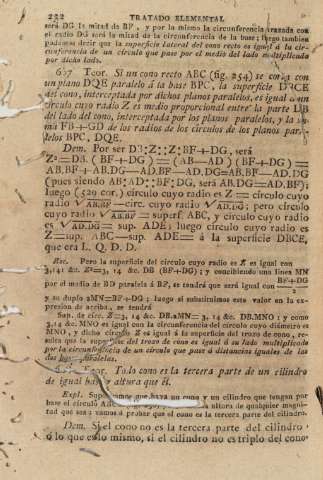 222 TRATADO ELEMENTAL
será DG la mitad de BP, y por la mismo la circunferencia trazada con
el radio DG será la mitad de la circunferencia de la base; luego tambien
podemos decir que la superficie lateral del cono recto es igual á la cir-
cunferencia de un círculo que pase por el medio del lado multiplicada
por dicho lado.
637 Teor. Si un cono recto ABC (fig. 254) se corta con
un plano DQE paralelo á la base BPC, la superficie DBCE
del cono, interceptada por dichos planos paralelos, es igual á un
círculo cuyo radio Z es medio proporcional entre la parte DB
del lado del cono, interceptada por los planos paralelos, y la su-
ma FB+GD de los radios de los círculos de los planos para-
lelos BPC, DQE.
Dem. Por ser DB:Z::Z:BF+DG, será
Z²=DB.(BF+DG)=(AB—AD)(BF+DG)=
AB.BF+AB.DG—AD.BF—AD.DG=AB.BF—AD.DG
(pues siendo AB:AD::BF:DG, será AB.DG=AD.BF);
luego (529 cor.) círculo cuyo radio es Z=círculo cuyo
radio √AB.BF—circ. cuyo radio √AD.DG; pero círculo
cuyo radio √AB.BF=superf. ABC, y círculo cuyo radio
es √AD.DG=sup. ADE; luego círculo cuyo radio es
Z=sup. ABC—sup. ADE=á la superficie DBCE,
que era L. Q. D. D.
Esc. Pero la superficie del círculo cuyo radio es Z es igual con
3,14 &c. Z²=3, 14 &c. DB (BF+DG); y concibiendo una línea MN
por el medio de BD paralela á BF, se tendrá que será igual con BF+DG/2
y su duplo 2MN=BF+DG; luego si substituimos este valor en la ex-
presion de arriba, se tendrá
Sup. de circ. Z=3, 14 &c. DB.2MN=3, 14 &c. DB.MNO; y como
3,14 &c. MNO es igual con la circunferencia del círculo cuyo diámetro es
MNO, y dicho círculo Z es igual á la superficie del trozo de cono, re-
sulta que la superficie del trozo de cono es igual á su lado multiplicado
por la circunferencia de un círculo que pase á distancias iguales de las
bases paralelas.
Teor. Todo cono es la tercera parte de un cilindro
de igual base y altura que él.
Expl. Supongamos que haya un cono y un cilindro que tengan por
base el círculo altura de qualquier magni-
tud que sea; vamos á probar que el cono es la tercera parte del cilindro.
Dem. Si el cono no es la tercera parte del cilindro,
ó lo que es lo mismo, si el cilindro no es triplo del cono,